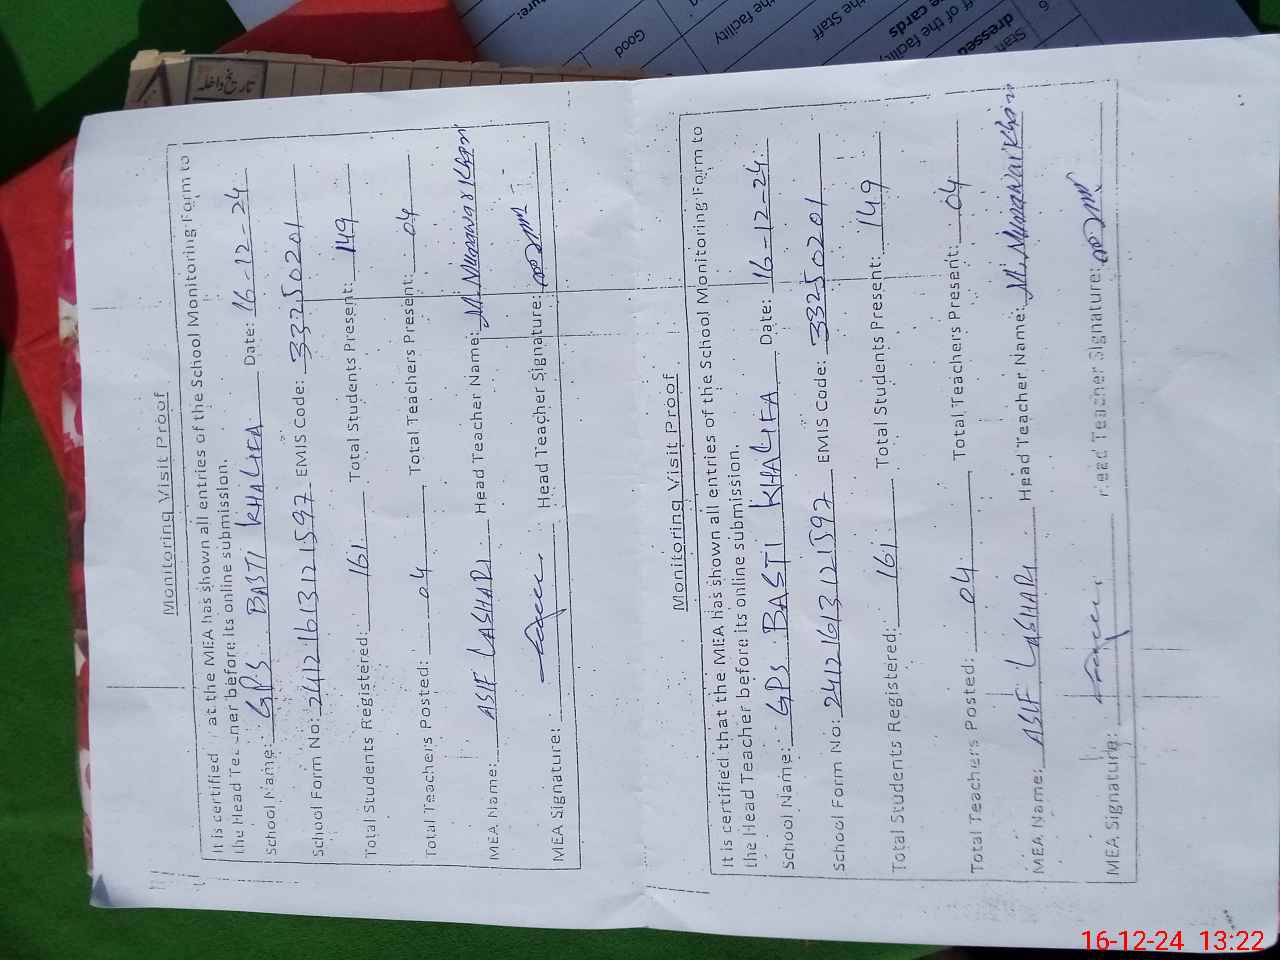 Monitoring Visit Proof
It is certified at the MEA has shown all entries of the School Monitoring Form to
the Head Te ner before its online submission.
School Name: GPS BASTI KHALIFA Date: 16-12-24
School Form No: 2412161312 1597 EMIS Code: 33250201
Total Students Registered: 161 Total Students Present: 149
Total Teachers Posted: 04 Total Teachers Present: 04
MEA Name: ASIF LASHARI Head Teacher Name: M. Munawar Khan
MEA Signature: Head Teacher Signature:
Monitoring Visit Proof
It is certified that the MEA has shown all entries of the School Monitoring Form to
the Head Teacher before its online submission.
School Name: GPS BASTI KHALIFA Date: 16-12-24
School Form No: 2412161312 1597 EMIS Code: 33250201
Total Students Registered: 161 Total Students Present: 149
Total Teachers Posted: 04 Total Teachers Present: 04
MEA Name: ASIF LASHARI Head Teacher Name: M. Munawar Khan
MEA Signature: Head Teacher Signature:
تاریخ داخلہ
Good
the facility
the Staff
ff of the facility
e cards
dressed
Stan
6
ure:
16-12-24 13:22